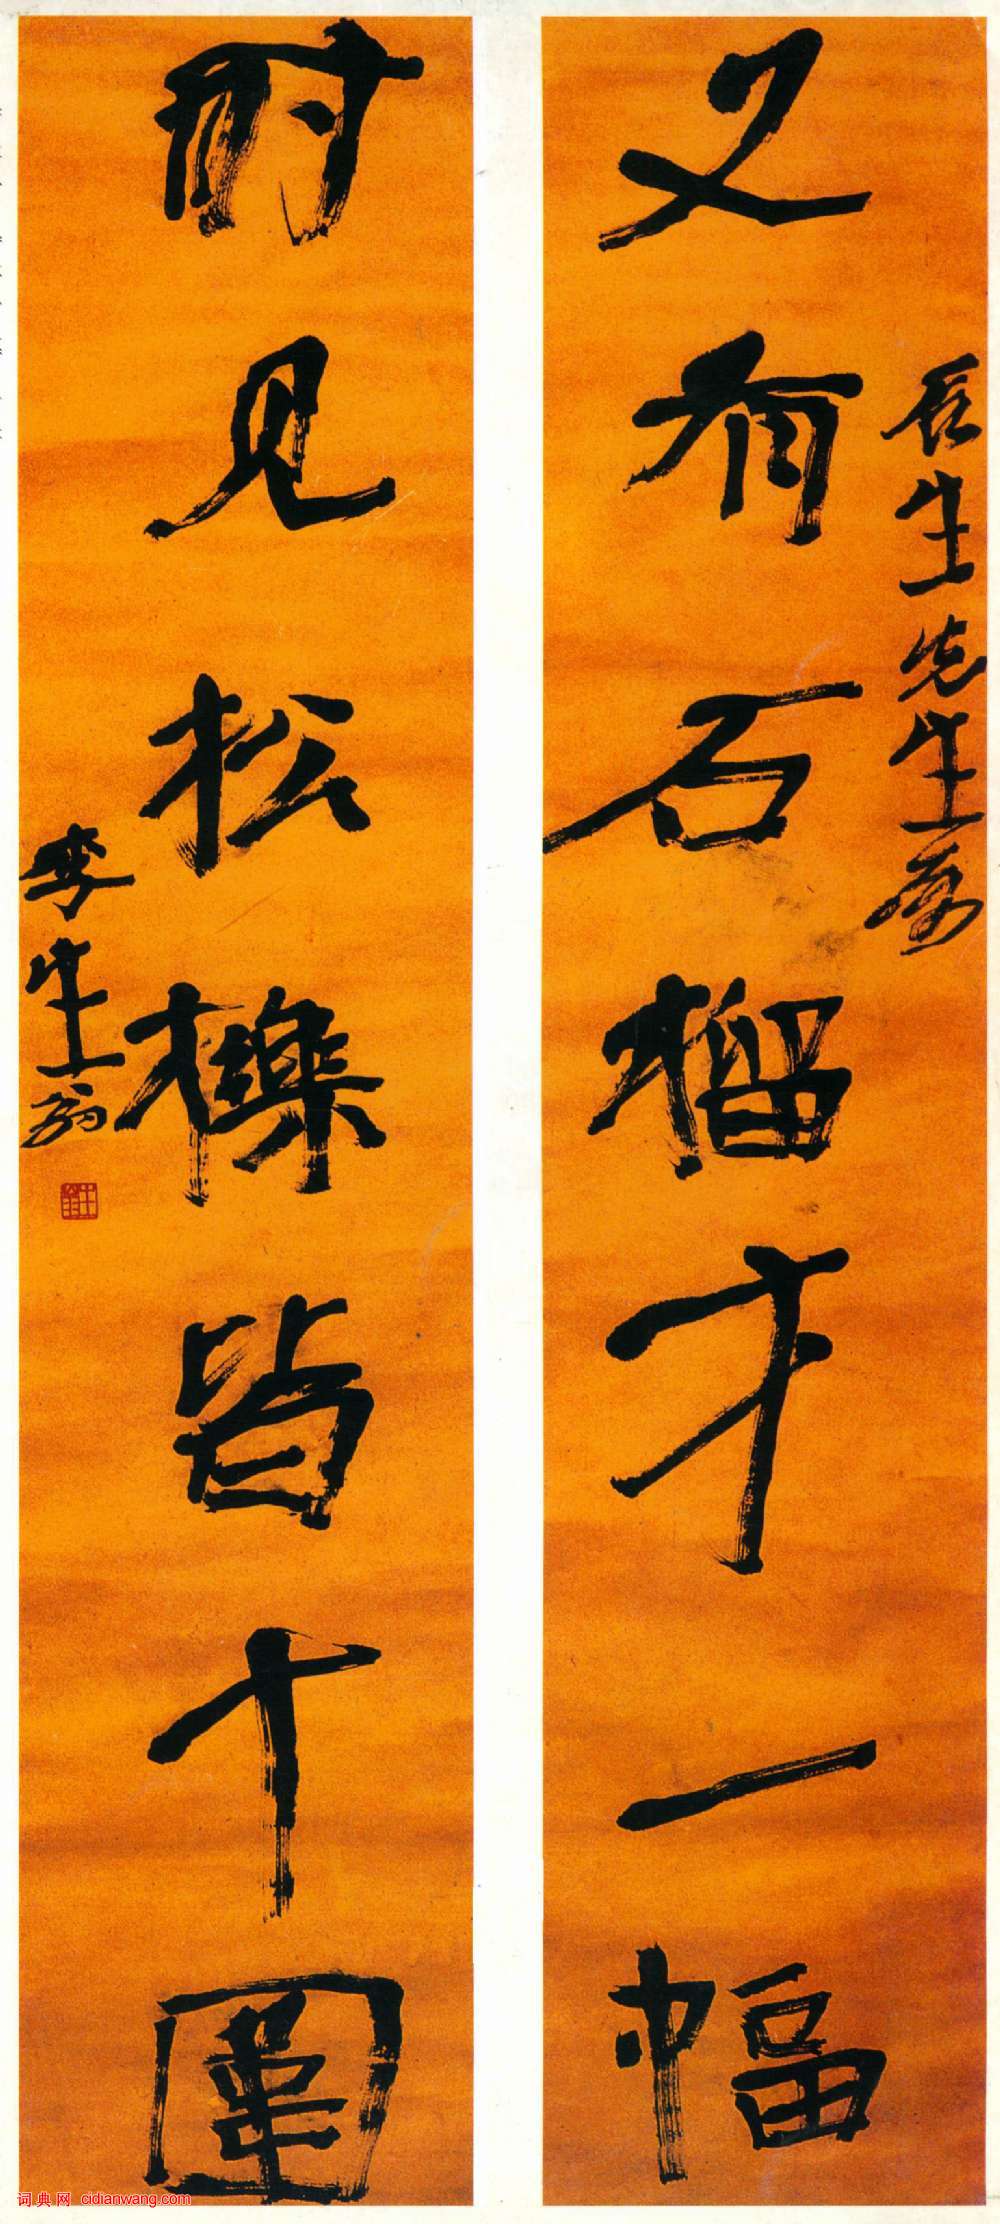 辰生先生属
又有石榴才一幅
时见松櫟皆十圍
李生翁
词典网 cidianwang.com